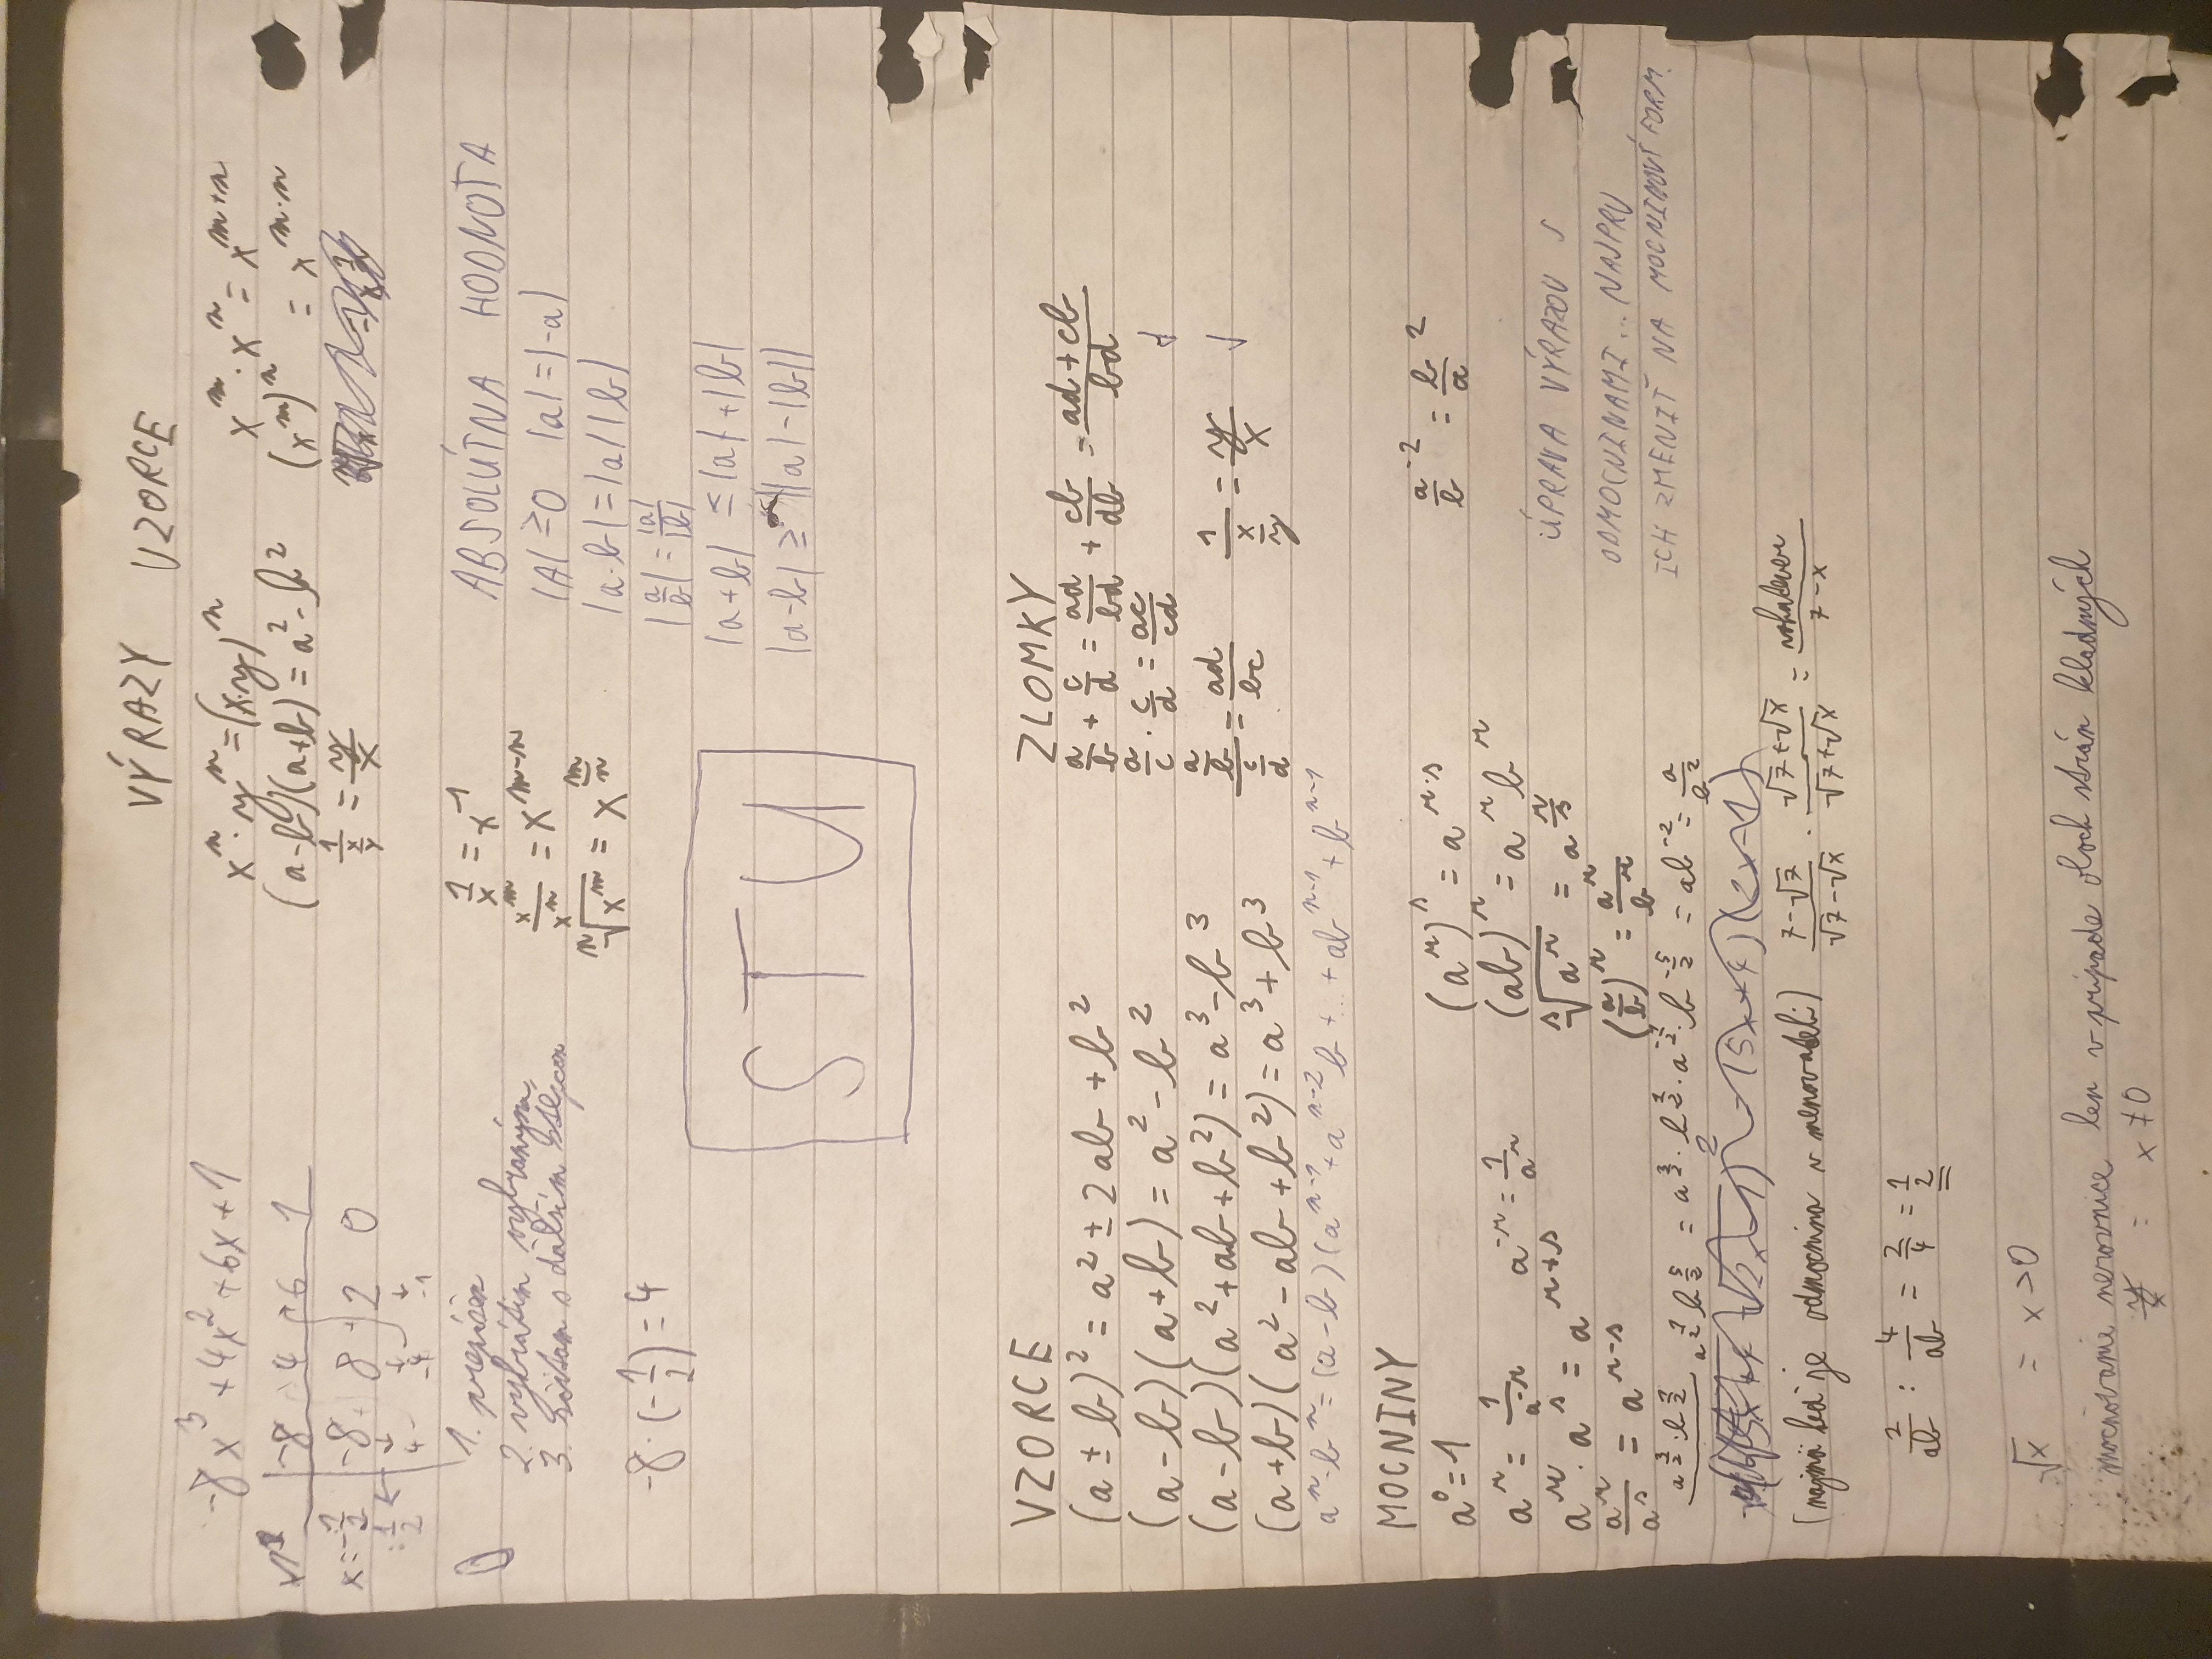 VÝRAZY VZORCE
-8x³ + 4x² + 6x + 1
-8 4 +6 1
x = -1/2 -8 8 2 0
: 1/2 ← 4 -4 -1
1. prepíšem
2. vybraným
3. sčítam s ďalším stĺpcom
-8 · (-1/2) = 4
xⁿ · yⁿ = (x·y)ⁿ
(a-b)(a+b) = a² - b²
1/(x/y) = y/x
1/x = x⁻¹
xᵐ/xⁿ = xᵐ⁻ⁿ
ⁿ√(xᵐ) = x^(m/n)
xᵐ · xⁿ = xᵐ⁺ⁿ
(xᵐ)ⁿ = x^(m·n)
ABSOLÚTNA HODNOTA
|A| ≥ 0 |a| = |-a|
|a·b| = |a||b|
|a/b| = |a|/|b|
|a+b| ≤ |a| + |b|
|a-b| ≥ ||a| - |b||
STU
VZORCE
(a ± b)² = a² ± 2ab + b²
(a-b)(a+b) = a² - b²
(a-b)(a² + ab + b²) = a³ - b³
(a+b)(a² - ab + b²) = a³ + b³
aⁿ - bⁿ = (a-b)(aⁿ⁻¹ + aⁿ⁻²b + ... + abⁿ⁻¹ + bⁿ⁻¹
ZLOMKY
a/b + c/d = ad/bd + cb/db = (ad+cb)/bd
a/c · c/d = ac/cd
(a/b)/(c/d) = ad/bc 1/(x/y) = y/x
MOCNINY
a⁰ = 1
a^r = 1/a^-r a^-r = 1/a^r
a^r · a^s = a^(r+s)
a^r/a^s = a^(r-s)
(a^r)^s = a^(r·s)
(ab)^r = a^r b^r
ˢ√(a^r) = a^(r/s)
(a/b)^r = a^r/b^r
a/b ⁻² = b/a ²
ÚPRAVA VÝRAZOV S
ODMOCNINAMI... NAJPRV
ICH ZMENIŤ NA MOCNINOVÝ FORM.
a^(3/2) · b^(1/2) a^(1/2) b^(5/2) = a^(3/2) · b^(1/2) · a^(-1/2) · b^(-5/2) = ab⁻² = a/b²
(√5x+4 - √2x-1)² = (5x+4)(2x-1)
(najmä keď je odmocnina v menovateli) (7-√7)/(√7-√x) · (√7+√x)/(√7+√x) = whatever/(7-x)
2/ab : 4/ab = 2/4 = 1/2
√x = x > 0
mocňovanie nerovnice len v prípade oboch strán kladných
y/x = x ≠ 0